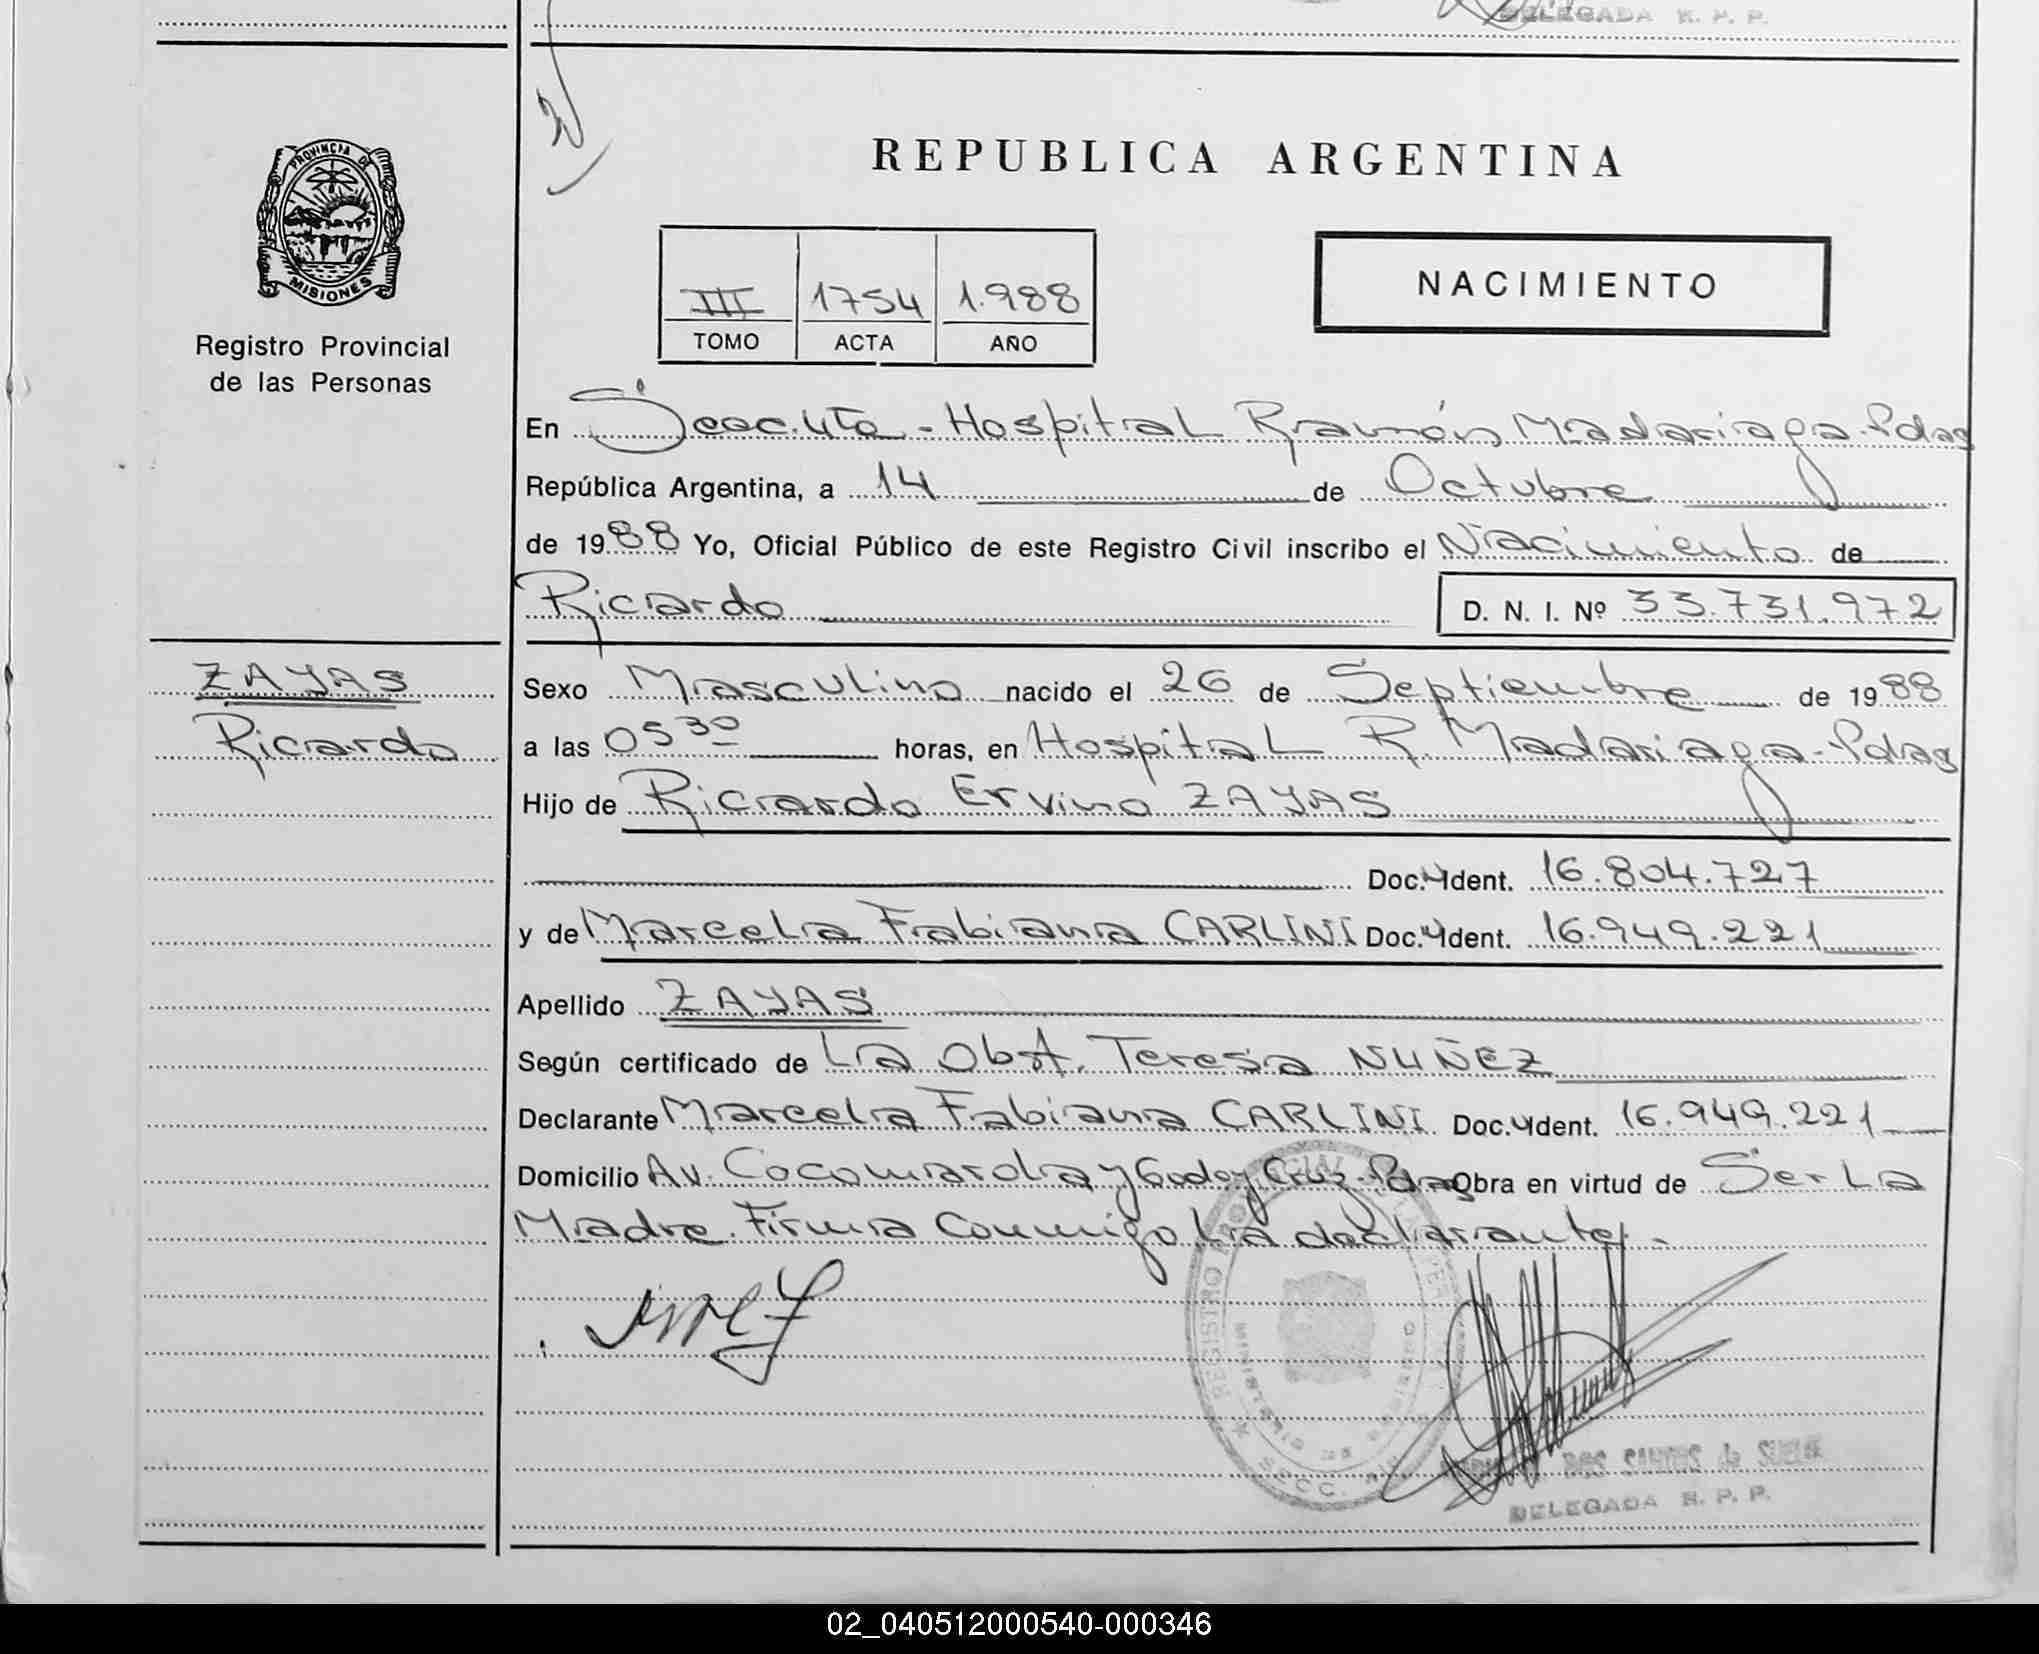 DELEGADA R. P. P.
REPUBLICA ARGENTINA
PROVINCIA DE
MISIONES
Registro Provincial
de las Personas
NACIMIENTO
III 1754 1.988
TOMO ACTA AÑO
En Hospital Ramón Madariaga. Pdas
República Argentina, a 14 de Octubre
de 1988 Yo, Oficial Público de este Registro Civil inscribo el Nacimiento de
Ricardo D. N. I. Nº 33.731.972
ZAYAS
Ricardo
Sexo Masculino nacido el 26 de Septiembre de 1988
a las 05 30 horas, en Hospital R. Madariaga - Pdas
Hijo de Ricardo Ervino ZAYAS
Doc. Ident. 16.804.727
y de Marcela Fabiana CARLINI Doc. Ident. 16.949.221
Apellido ZAYAS
Según certificado de La Obst. Teresa NUÑEZ
Declarante Marcela Fabiana CARLINI Doc. Ident. 16.949.221
Domicilio Av. Cocomarola y Godoy Cruz - Pdas Obra en virtud de Ser La
Madre. Firma Conmigo La declarante. -
REGISTRO
DOS SANTOS de
DELEGADA R. P. P.
02_040512000540-000346